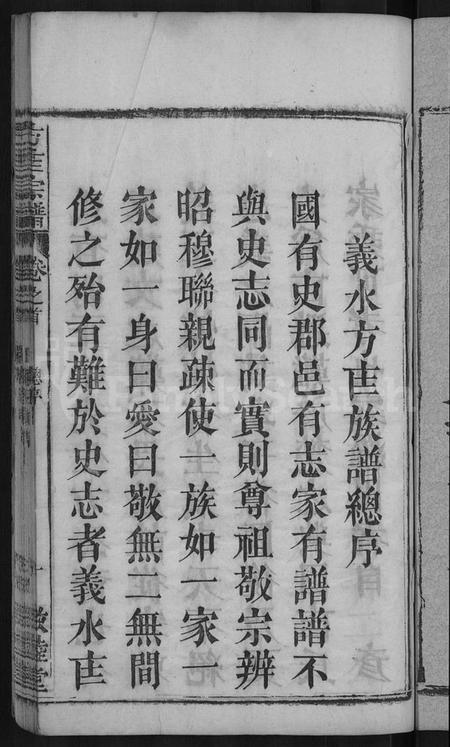 義水方氏族譜總序
國有史郡邑有志家有譜譜不
與史志同而實則尊祖敬宗辨
昭穆聯親疎使一族如一家一
家如一身曰愛曰敬無二無間
修之殆有難於史志者義水氏
方氏宗譜 卷之首 總序 一 敦睦堂